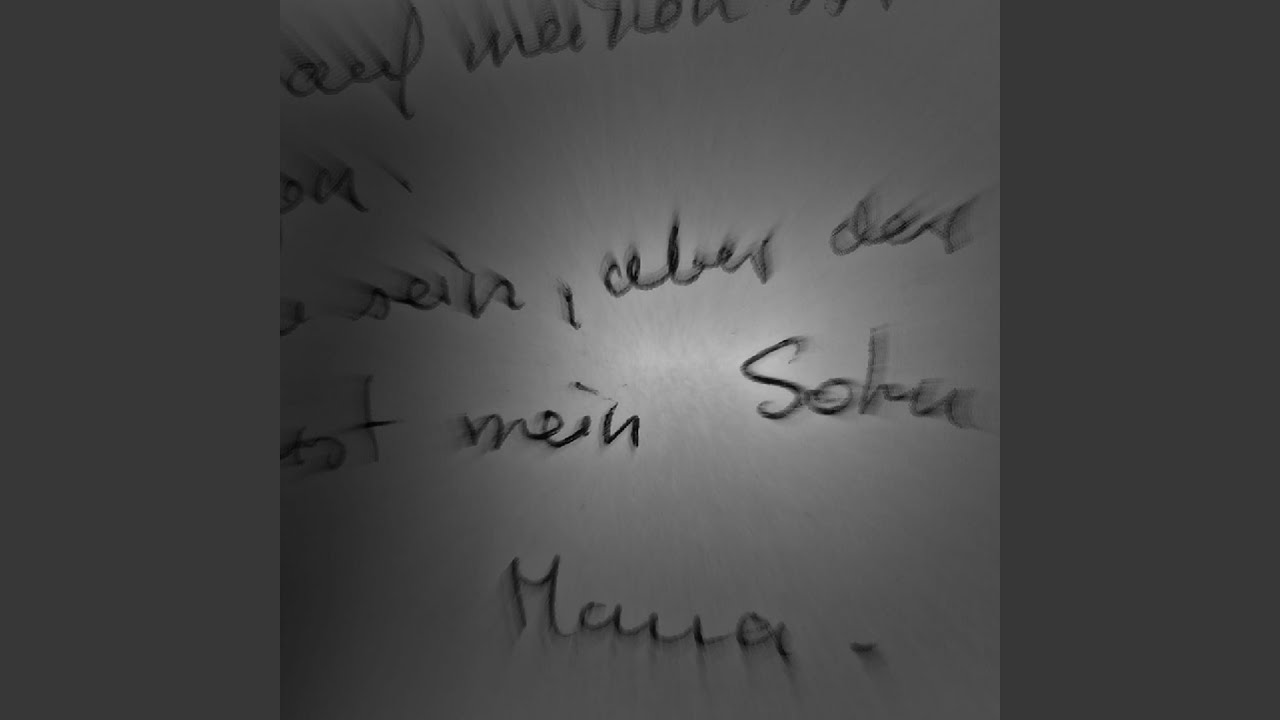 auf meinen
sein, aber der
ist mein Sohn
Mama.